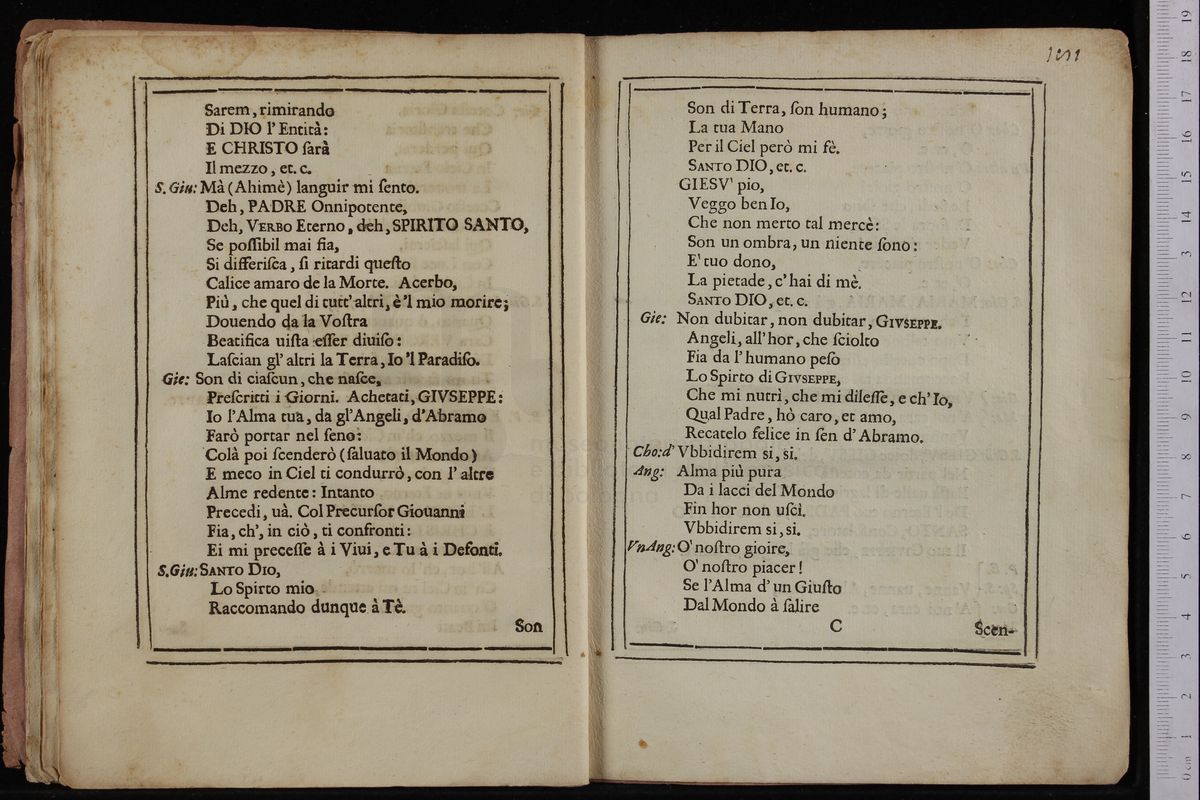 Sarem, rimirando
Di DIO l'Entità:
E CHRISTO ſarà
Il mezzo, et. c.
S. Giu: Mà (Ahimè) languir mi ſento.
Deh, PADRE Onnipotente,
Deh, VERBO Eterno, deh, SPIRITO SANTO,
Se poſſibil mai ſia,
Si differiſca, ſi ritardi queſto
Calice amaro de la Morte. Acerbo,
Più, che quel di tutt'altri, è'l mio morire;
Douendo da la Voſtra
Beatifica uiſta eſſer diuiſo:
Laſcian gl'altri la Terra, Io'l Paradiſo.
Gie: Son di ciaſcun, che naſce,
Preſcritti i Giorni. Achetati, GIVSEPPE:
Io l'Alma tua, da gl'Angeli, d'Abramo
Farò portar nel ſeno:
Colà poi ſcenderò (ſaluato il Mondo)
E meco in Ciel ti condurrò, con l'altre
Alme redente: Intanto
Precedi, uà. Col Precurſor Giouanni
Fia, ch', in ciò, ti confronti:
Ei mi preceſſe à i Viui, e Tu à i Defonti.
S. Giu: SANTO DIO,
Lo Spirto mio
Raccomando dunque à Tè.
Son
Son di Terra, ſon humano;
La tua Mano
Per il Ciel però mi fè.
SANTO DIO, et. c.
GIESV' pio,
Veggo ben Io,
Che non merto tal mercè:
Son un ombra, un niente ſono:
E' tuo dono,
La pietade, c'hai di mè.
SANTO DIO, et. c.
Gie: Non dubitar, non dubitar, GIVSEPPE.
Angeli, all'hor, che ſciolto
Fia da l'humano peſo
Lo Spirto di GIVSEPPE,
Che mi nutrì, che mi dileſſe, e ch'Io,
Qual Padre, hò caro, et amo,
Recatelo felice in ſen d'Abramo.
Cho: d' Vbbidirem si, si.
Ang: Alma più pura
Da i lacci del Mondo
Fin hor non uſcì.
Vbbidirem si, si.
Vn Ang: O' noſtro gioire,
O' noſtro piacer!
Se l'Alma d'un Giuſto
Dal Mondo à ſalire
C
Scen-
0 cm 1 2 3 4 5 6 7 8 9 10 11 12 13 14 15 16 17 18 19